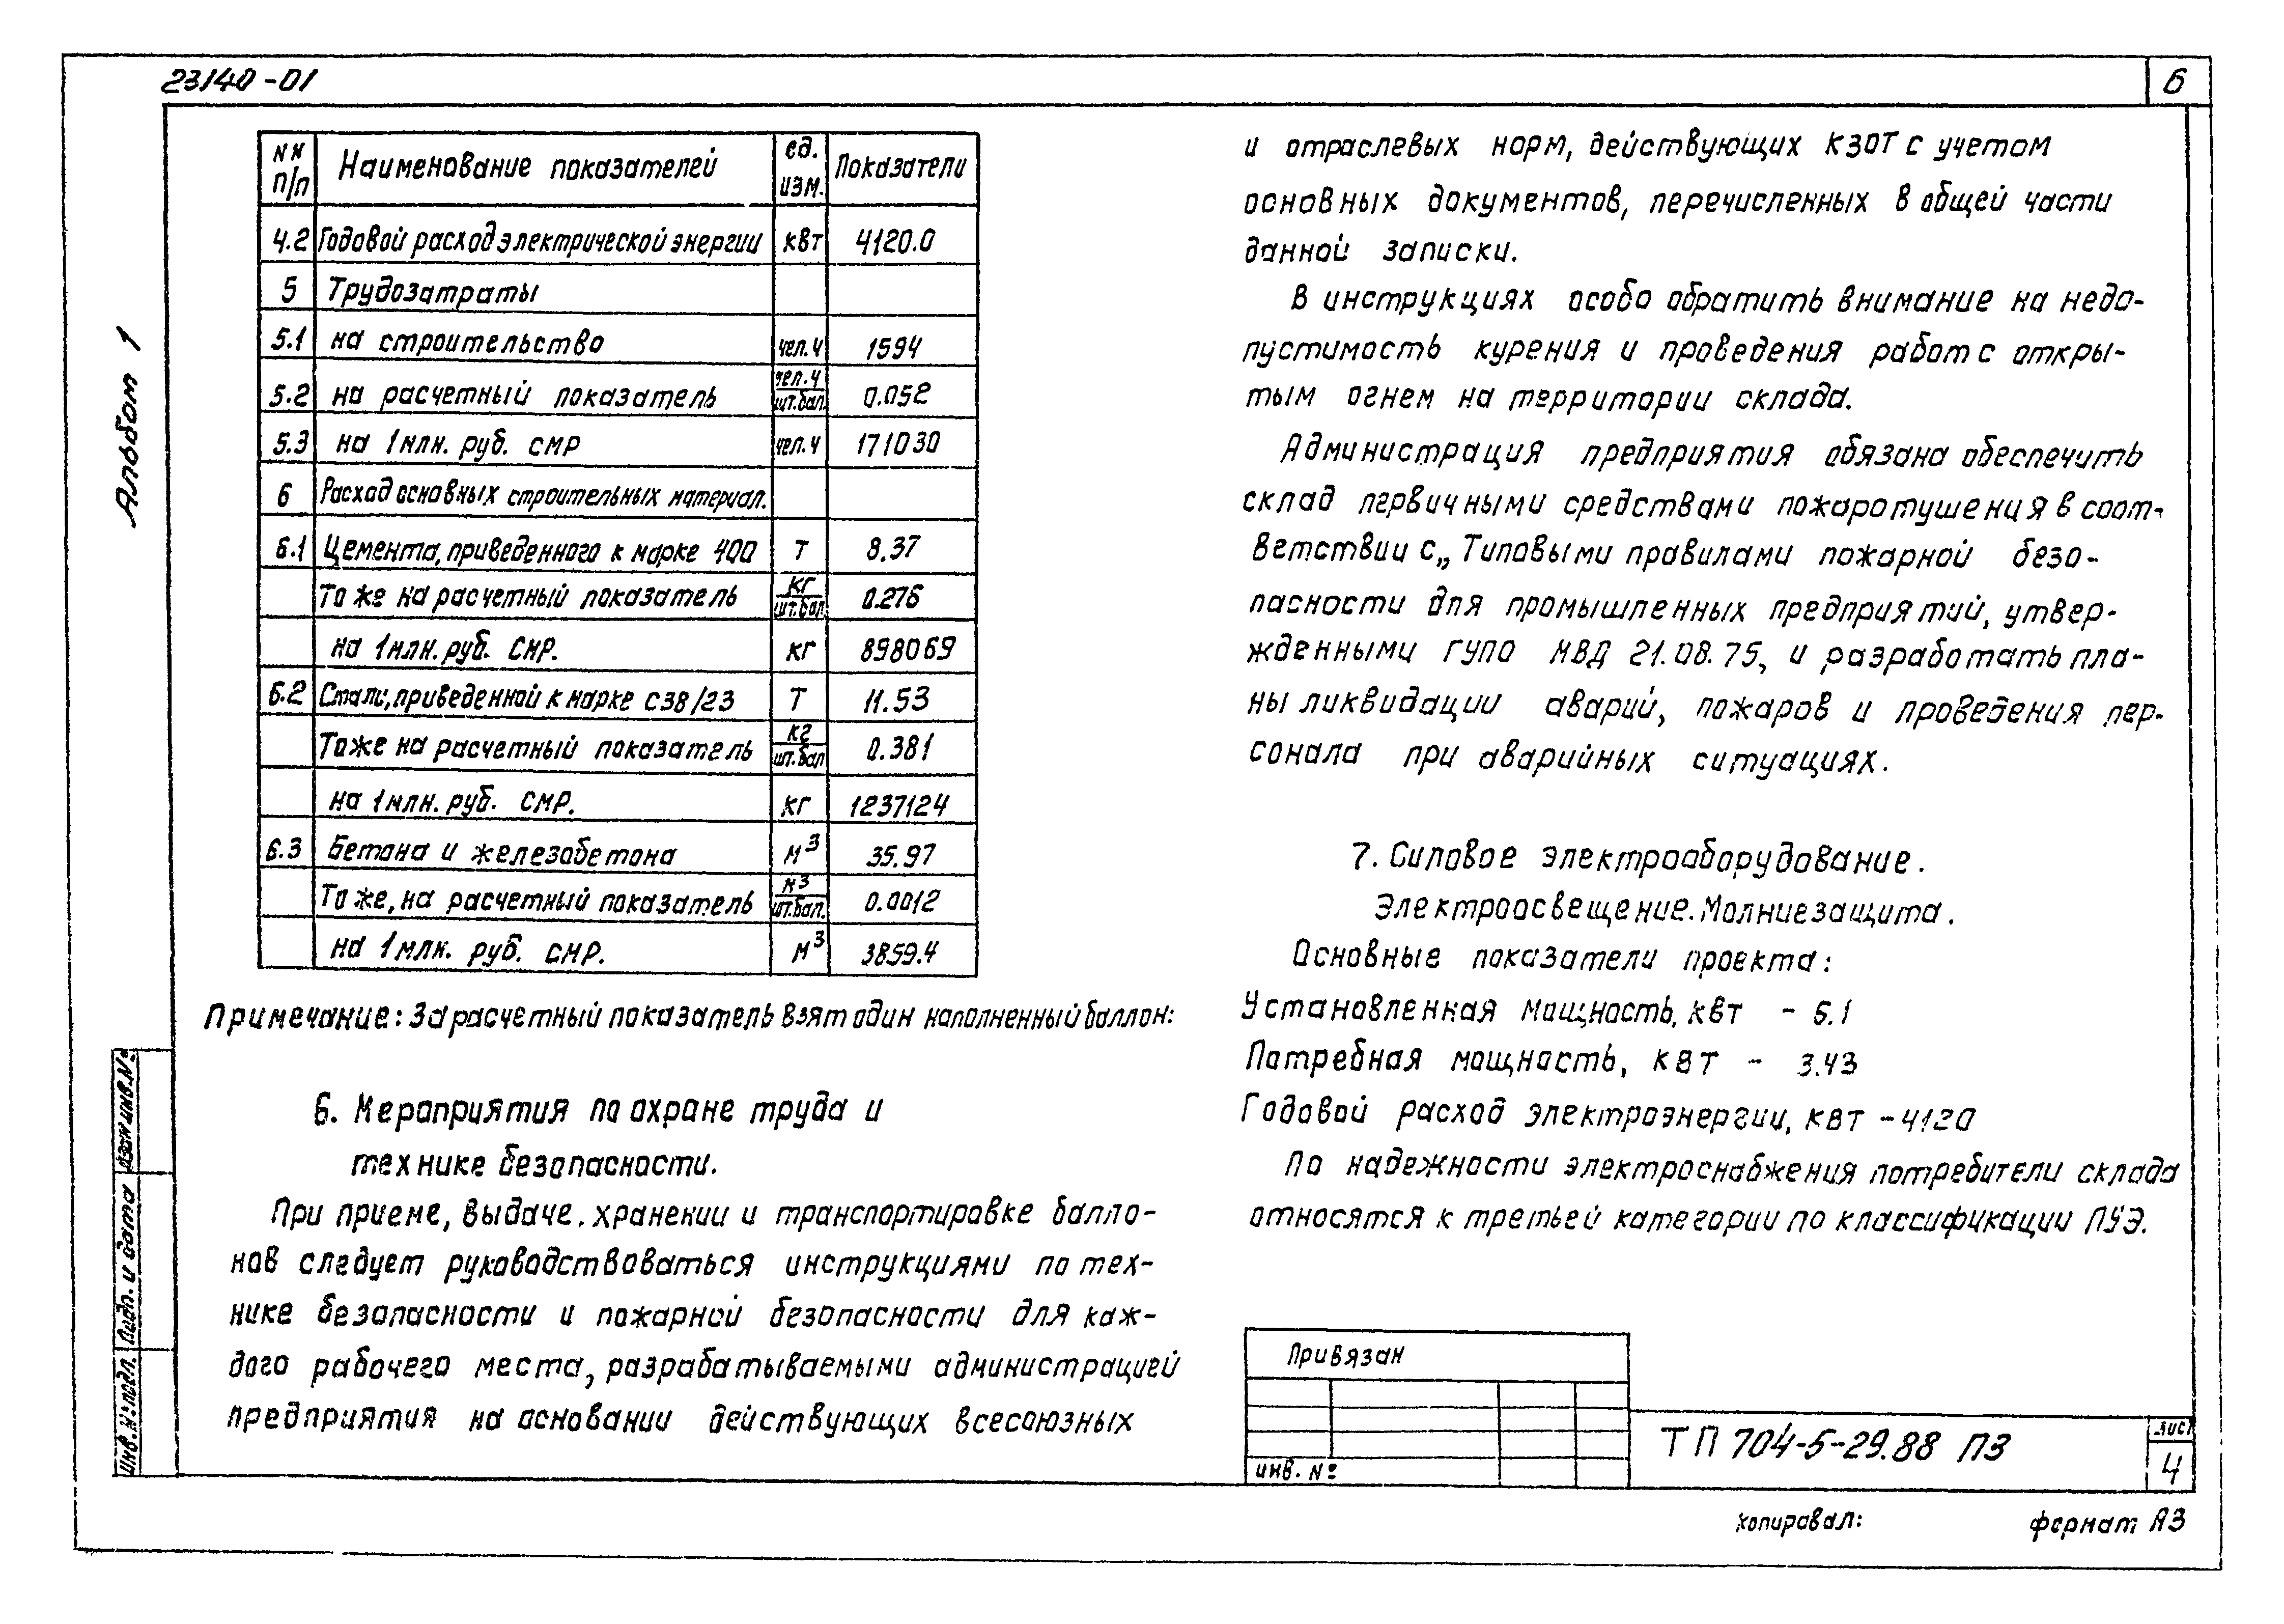 23140-01
6
Альбом 1
NN п/п Наименование показателей ед. изм. Показатели
4.2 Годовой расход электрической энергии квт 4120.0
5 Трудозатраты
5.1 на строительство чел.ч 1594
5.2 на расчетный показатель чел.ч/шт.бал. 0.052
5.3 на 1 млн. руб. смр чел.ч 171030
6 Расход основных строительных материал.
6.1 Цемента, приведенного к марке 400 т 8.37
То же на расчетный показатель кг/шт.бал. 0.276
на 1 млн. руб. СМР. кг 898069
6.2 Стали, приведенной к марке С38/23 т 11.53
То же на расчетный показатель кг/шт.бал 0.381
на 1 млн. руб. СМР. кг 1237124
6.3 Бетона и железобетона м³ 35.97
То же, на расчетный показатель м³/шт.бал. 0.0012
на 1 млн. руб. СМР. м³ 3859.4
Примечание: За расчетный показатель взят один наполненный баллон:
6. Мероприятия по охране труда и
технике безопасности.
При приеме, выдаче, хранении и транспортировке балло-
нов следует руководствоваться инструкциями по тех-
нике безопасности и пожарной безопасности для каж-
дого рабочего места, разрабатываемыми администрацией
предприятия на основании действующих всесоюзных
и отраслевых норм, действующих КЗОТ с учетом
основных документов, перечисленных в общей части
данной записки.
В инструкциях особо обратить внимание на недо-
пустимость курения и проведения работ с откры-
тым огнем на территории склада.
Администрация предприятия обязана обеспечить
склад первичными средствами пожаротушения в соот-
ветствии с „Типовыми правилами пожарной безо-
пасности для промышленных предприятий, утвер-
жденными ГУПО МВД 21.08.75, и разработать пла-
ны ликвидации аварий, пожаров и проведения пер-
сонала при аварийных ситуациях.
7. Силовое электрооборудование.
Электроосвещение. Молниезащита.
Основные показатели проекта:
Установленная мощность, квт - 6.1
Потребная мощность, квт - 3.43
Годовой расход электроэнергии, квт - 4120
По надежности электроснабжения потребители склада
относятся к третьей категории по классификации ПУЭ.
Инв. № подл. Подп. и дата Взам инв. №
Привязан
инв. №
ТП 704-5-29.88 ПЗ
лист
4
копировал:
формат А3